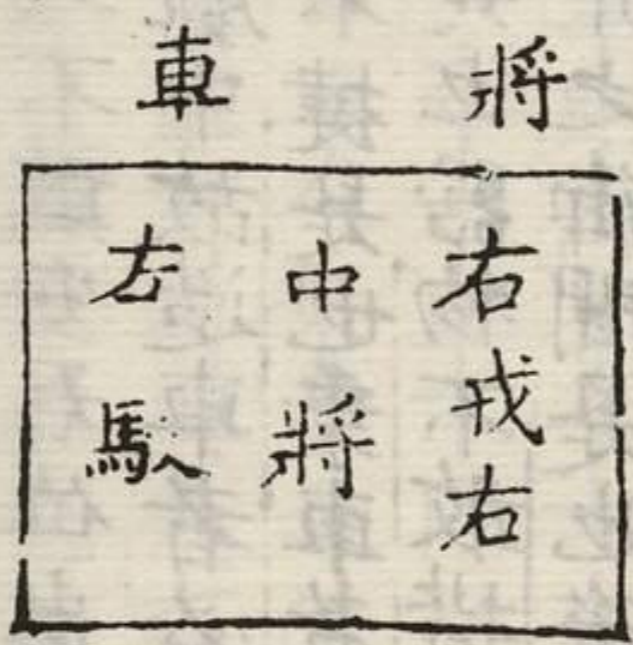 將車
右戎右
中將
左馭